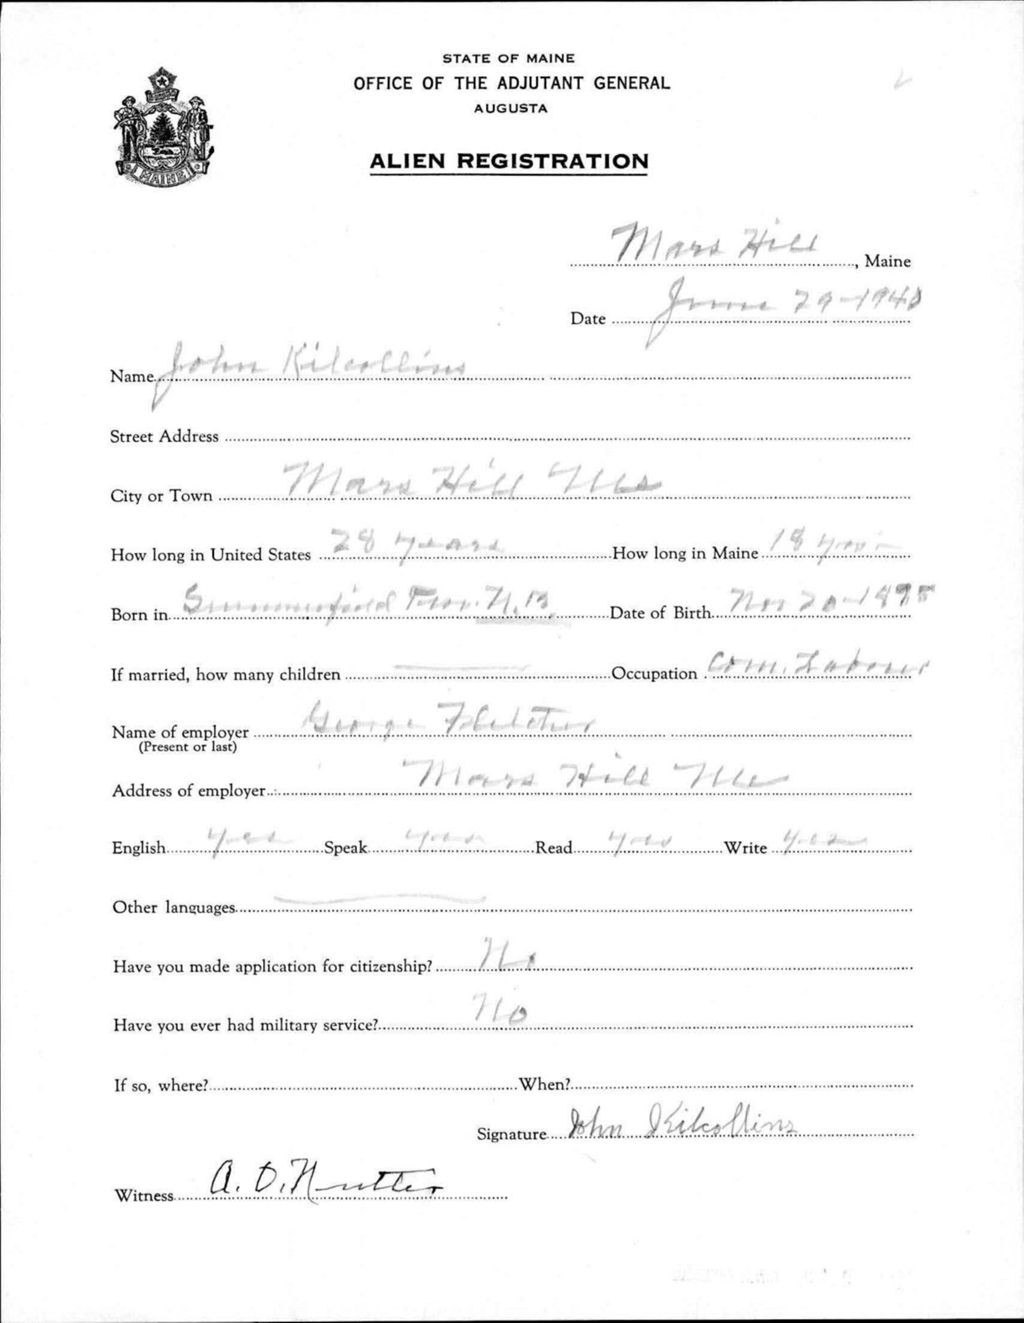 STATE OF MAINE
OFFICE OF THE ADJUTANT GENERAL
AUGUSTA
MAINE
ALIEN REGISTRATION
Mars Hill, Maine
Date June 29-1940
Name John Kilcollins
Street Address
City or Town Mars Hill Me
How long in United States 28 years How long in Maine
Born in Summerfield N.B. Date of Birth Nov 20-1895
If married, how many children Occupation Com. Laborer
Name of employer George Fletcher
(Present or last)
Address of employer Mars Hill Me
English yes Speak yes Read yes Write yes
Other languages
Have you made application for citizenship? No
Have you ever had military service? No
If so, where? When?
Signature John Kilcollins
Witness A. O. Nutter